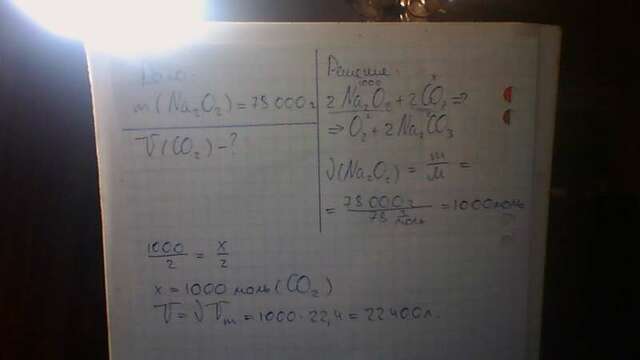 Дано:
m(Na₂O₂)=78000г
V(CO₂)-?
Решение:
1000 x
2Na₂O₂+2CO₂=>
⇒O₂+2Na₂CO₃
ν(Na₂O₂) = m/M =
= 78000г/78 г/моль =1000моль
1000/2 = x/2
x=1000 моль(CO₂)
V=νVm=1000·22,4=22400л.